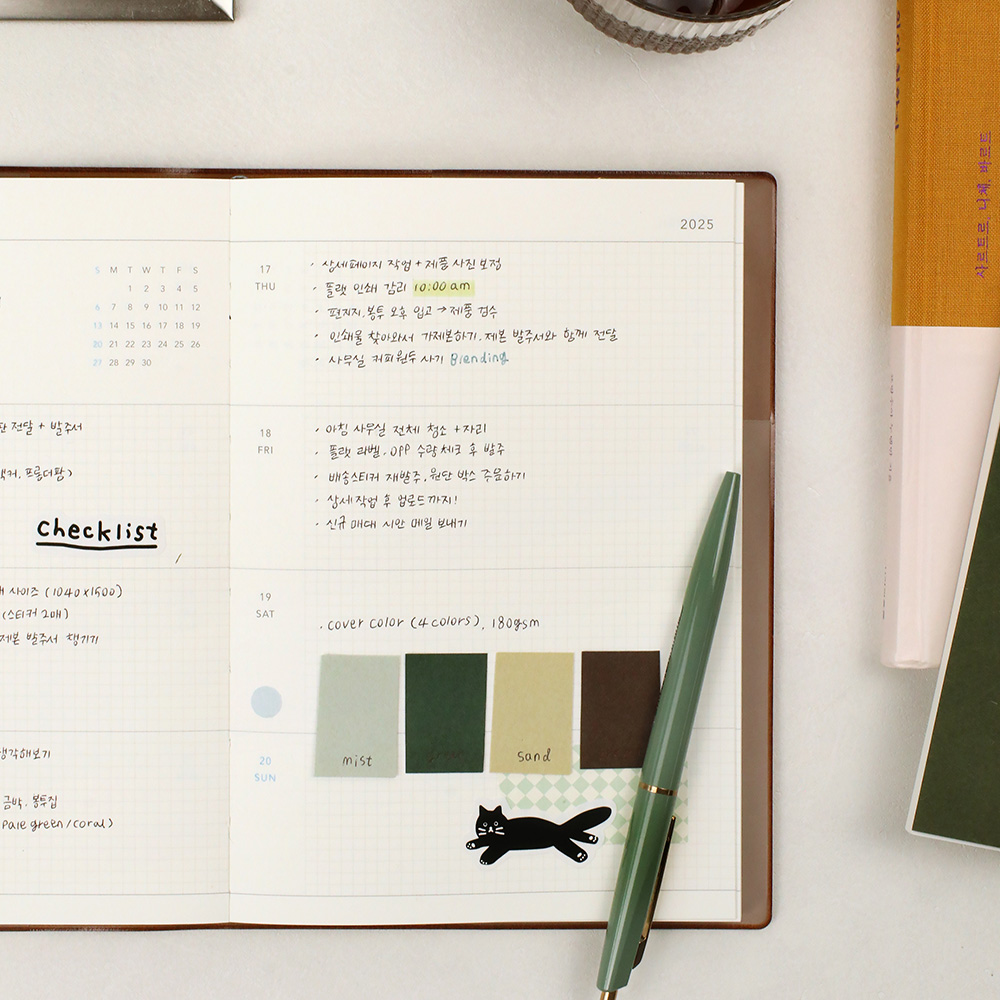 2025
S M T W T F S
1 2 3 4 5
6 7 8 9 10 11 12
13 14 15 16 17 18 19
20 21 22 23 24 25 26
27 28 29 30
전달 + 발주서
checklist
사이즈 (1040x1500)
(스티커 2매)
제본 발주서 챙기기
생각해보기
금박, 봉투집
pale green/coral)
17
THU
· 상세페이지 작업 + 제품 사진 보정
· 플랫 인쇄 감리 10:00 am
· 편지지, 봉투 오후 입고 → 제품 검수
· 인쇄물 찾아와서 가제본하기, 제본 발주서와 함께 전달
· 사무실 커피원두 사기 Blending
18
FRI
· 아침 사무실 전체 청소 + 자리
· 플랫 라벨, OPP 수량 체크 후 발주
· 배송스티커 재발주, 원단 박스 주문하기
· 상세 작업 후 업로드까지!
· 신규 매대 시안 메일 보내기
19
SAT
. cover color (4 colors), 180gsm
mist
sand
20
SUN
사르트르, 니체, 바르트